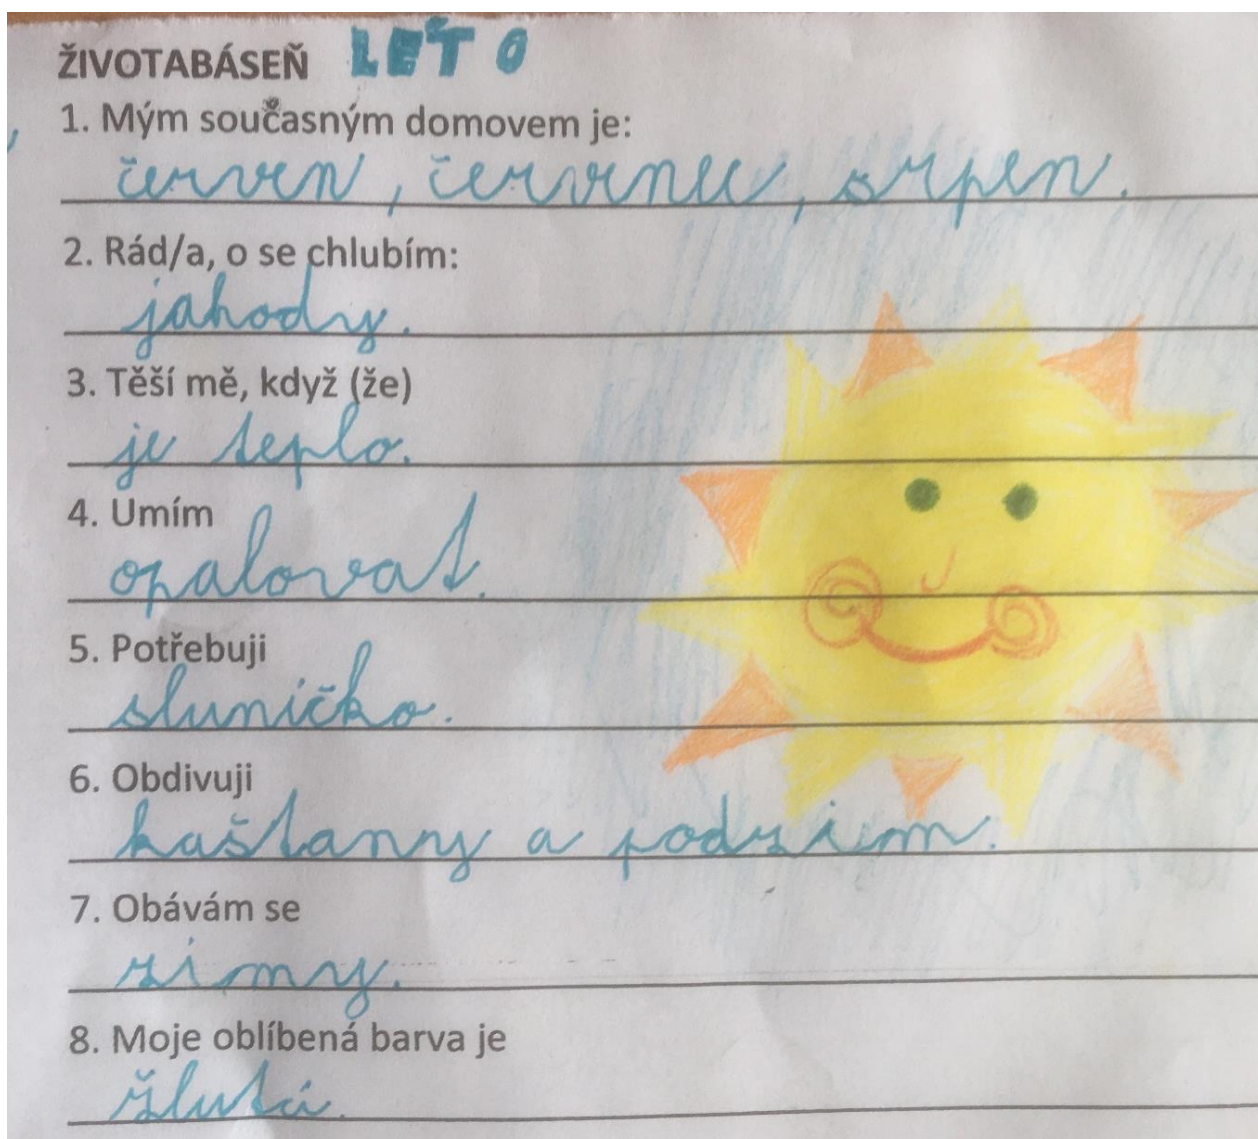 ŽIVOTABÁSEŇ LÉTO
1. Mým současným domovem je:
červen, červenec, srpen.
2. Rád/a, o se chlubím:
jahody.
3. Těší mě, když (že)
je teplo.
4. Umím
opalovat.
5. Potřebuji
sluničko.
6. Obdivuji
kaštanny a podzim.
7. Obávám se
zimy.
8. Moje oblíbená barva je
žlutá.